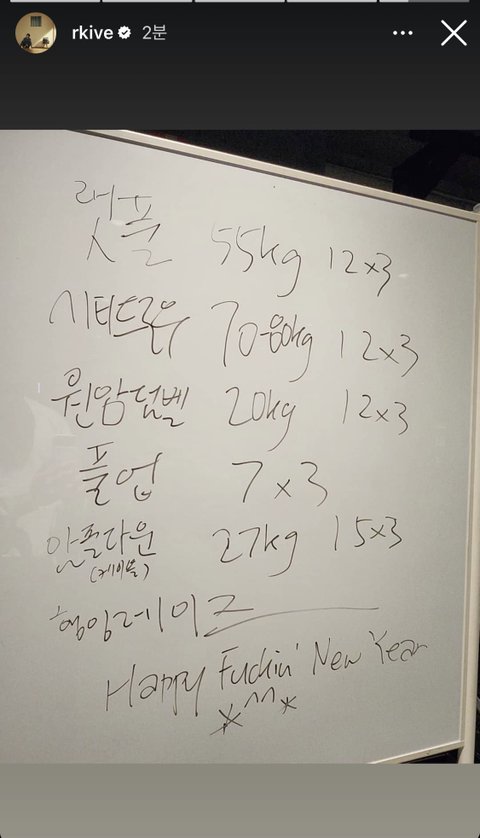 rkive 2분
랫풀 55kg 12x3
시티드로우 70-80kg 12x3
원암덤벨 20kg 12x3
풀업 7x3
암풀다운 27kg 15x3
(케이블)
행잉레이즈
Happy Fuckin' New Year
*^^*